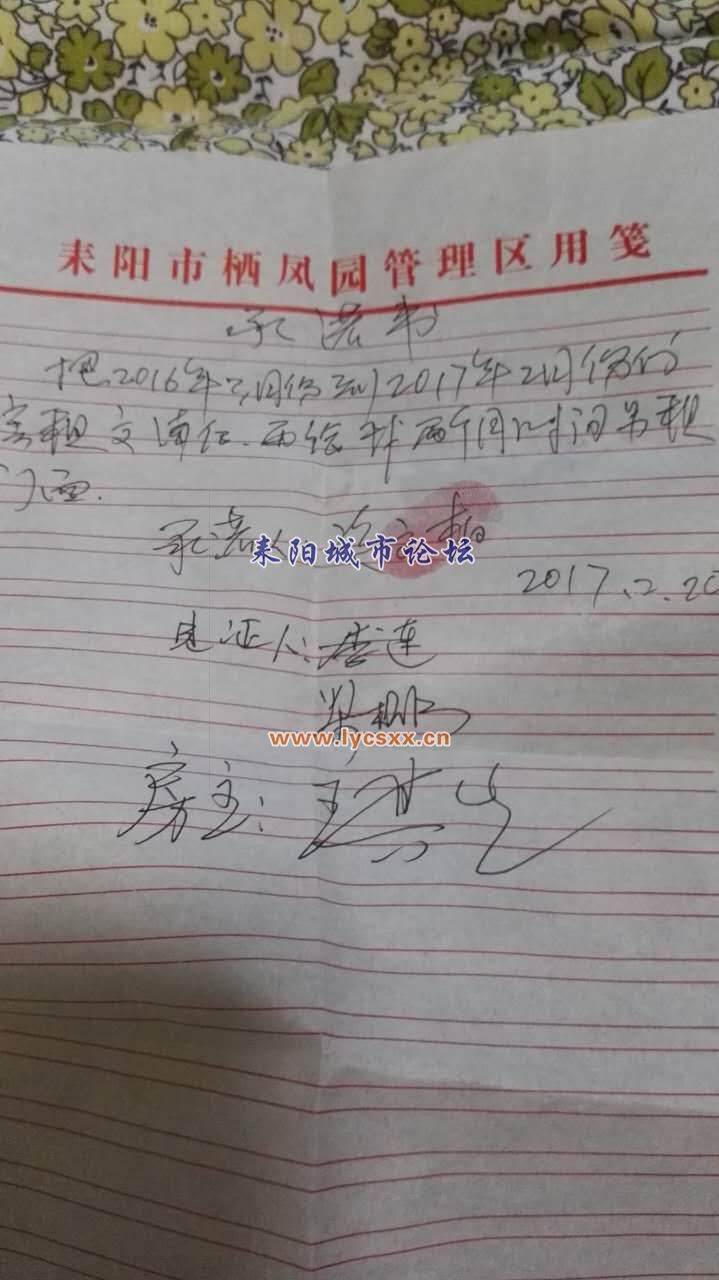 耒阳市栖凤园管理区用笺
承诺书
把2016年3月份到2017年2月份的
房租交清后.再给我两个月时间另租
门面.
承诺人
耒阳城市论坛
2017.2.20
见证人:
www.lycsxx.cn
房主: